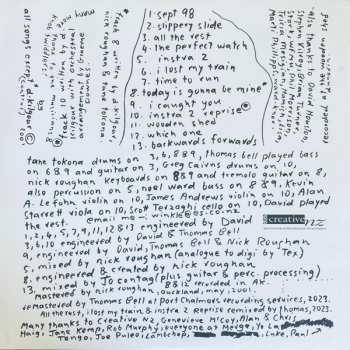 1. sept 98
2. slippery slide
3. all the rest
4. the perfect watch
5. instra 2
6. i lost my train
7. time to run
8. today is gonna be mine
9. i caught you
10. instra 2 reprise
11. wooden shed
12. which one
13. backwards forwards
all songs except d. kilgour ©
track 8 written by d. kilgour
nick roughan & tane tokona
track 10 written by d.
kilgour with orchestral
arrangement by Graeme
Downes
also thanks to David
Stephen Kilroy, Brian Turner,
Martin Phillipps,
tane tokona drums on 3, 6, 8 & 9, thomas bell played bass
on 6 8 9 and guitar on 3, Greg Cairns drums on 10,
nick roughan keyboards on 8 & 9 and tremolo guitar on 8,
also percusion on 5, noel ward bass on 8 & 9, Kevin
A. Lefohn violin on 10, James Andrews violin on 10, Alan
Starrett viola on 10, Scot Terzaghi cello on 10, David played
the rest. email me - winkle@es.co.nz.
creative nz
1, 2, 4, 5, 7, 9, 11, 12 & 13 engineered by David
3, 6, 10 engineered by David & Thomas Bell
9, engineered by David, Thomas Bell & Nick Roughan
5, mixed by nick roughan (analogue to digi by Tex)
8, engineered & created by nick roughan
13, mixed by Jo contag (plus guitar & perc. processing)
Mastered by nick roughan, auckland, may, 2001.
remastered by Thomas Bell at Port Chalmers recording services, 2023.
All the rest, i lost my train & instra 2 Reprise remixed by thomas, 2023.
Many thanks to Creative NZ, Genevieve McCoy, Alan & Chris
Haig, Jane Kemp, Rob Murphy, everyone at Merge, Yo La
Tengo, Joe Puleo, Lambchop, Luke, Paul